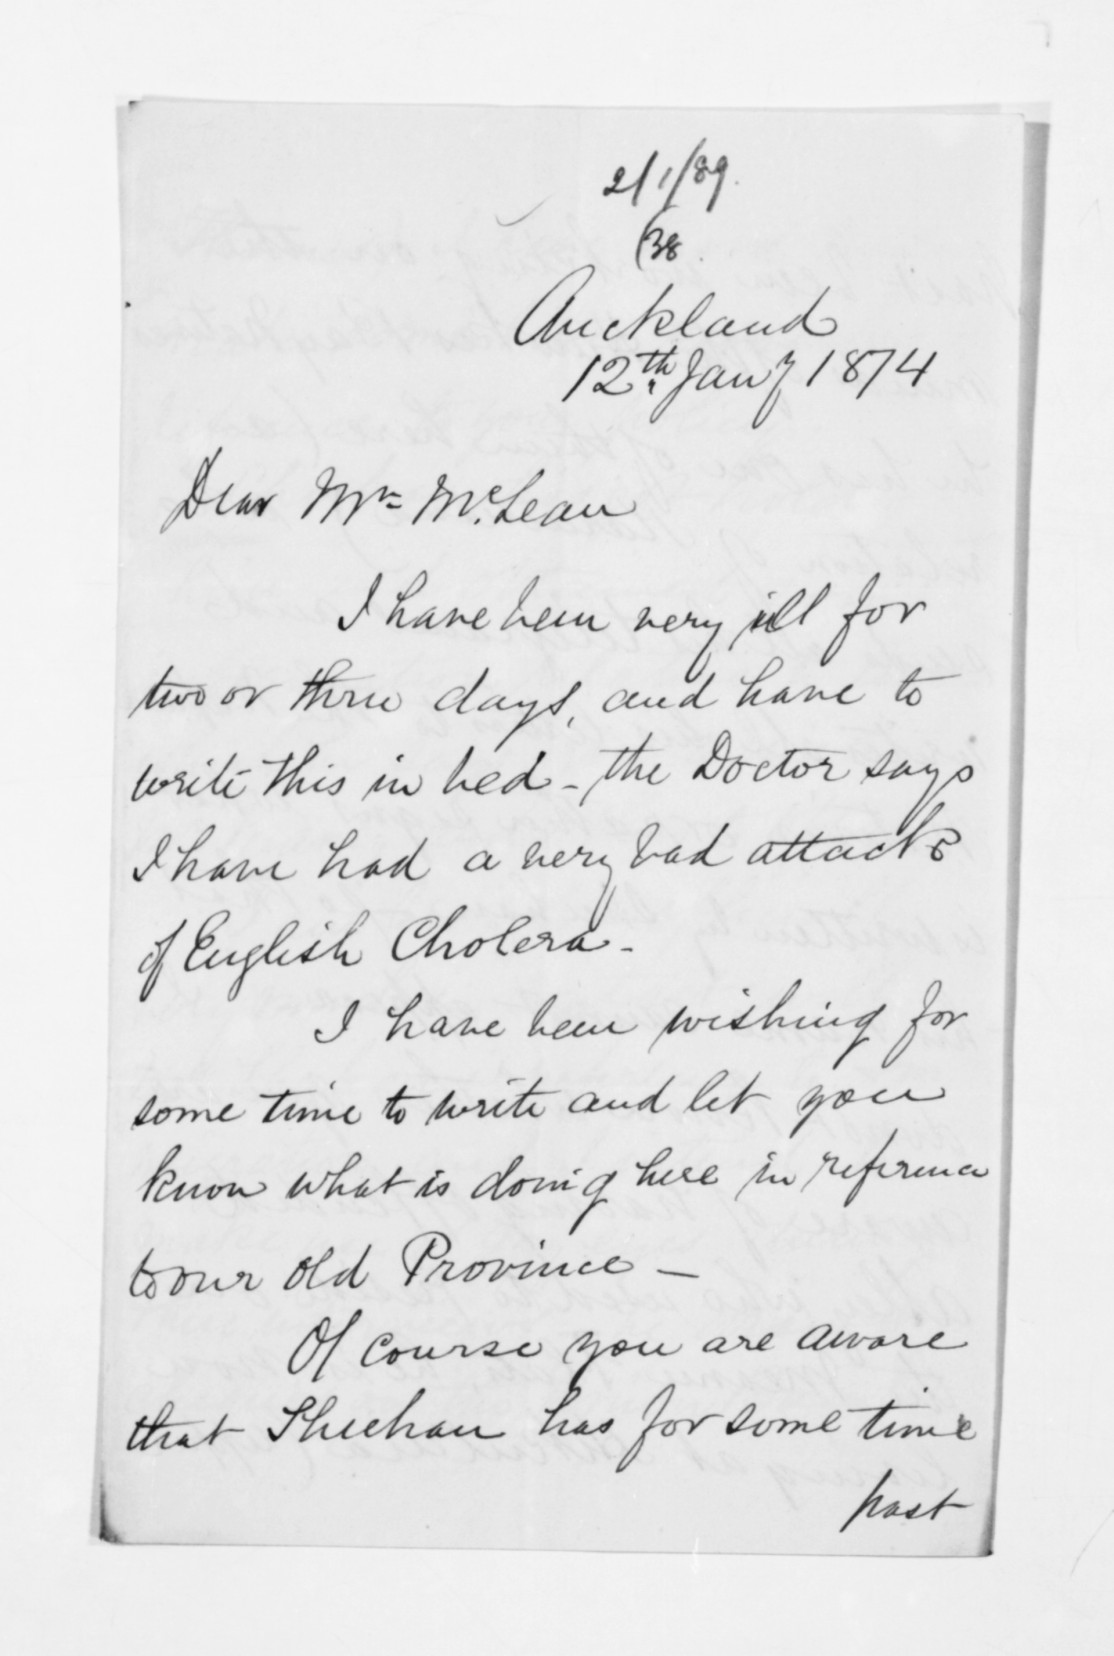 2/1/89.
(38.
Auckland
12th. Jany 1874
Dear Mr. McLean
I have been very ill for
two or three days, and have to
write this in bed - the Doctor says
I have had a very bad attack
of English Cholera -
I have been wishing for
some time to write and let you
know what is doing here in reference
to our old Province -
Of course you are aware
that Sheehan has for some time
past